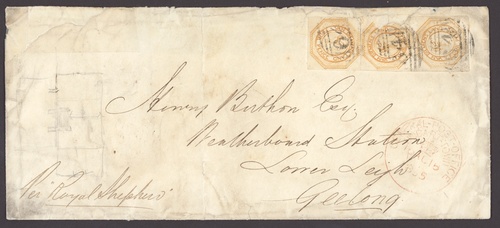 Henry Berthon Esq.
Weatherboard Station
Lower Leigh
Geelong
Per "Royal Shepherd"